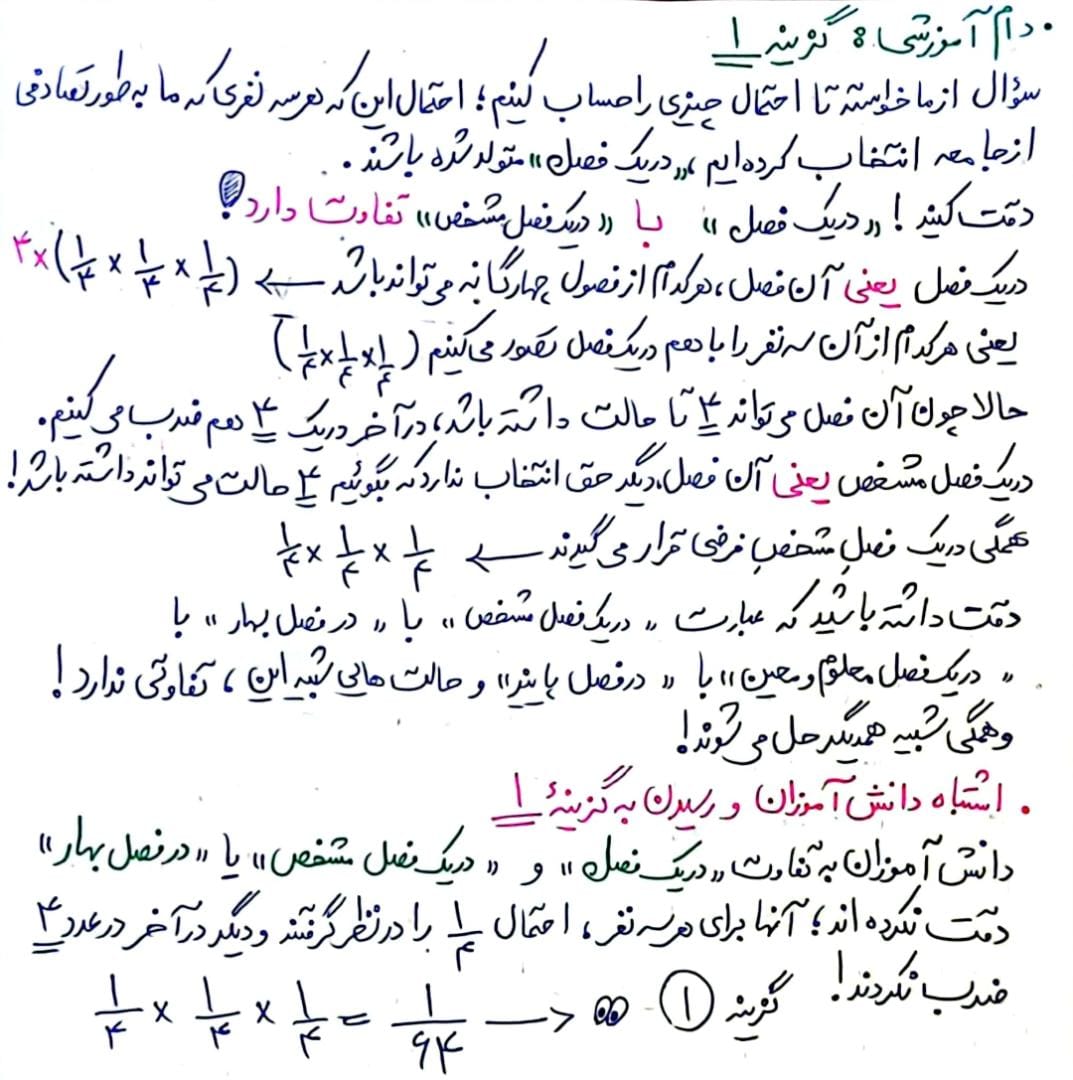 • دام آموزشی: گزینه ۱
سؤال از ما خواسته تا احتمال چیزی را حساب کنیم؛ احتمال این که هر سه نفری که ما به طور تصادفی
از جامعه انتخاب کرده ایم، «در یک فصل» متولد شده باشند.
دقت کنید! «در یک فصل» با «در یک فصل مشخص» تفاوت دارد!
در یک فصل یعنی آن فصل، هر کدام از فصول چهارگانه می تواند باشد ← (۱/۴ × ۱/۴ × ۱/۴) ×۴
یعنی هر کدام از آن سه نفر را با هم در یک فصل تصور می کنیم (۱/۴×۱/۴×۱/۴)
حالا چون آن فصل می تواند ۴ تا حالت داشته باشد، در آخر در یک ۴ هم ضرب می کنیم.
در یک فصل مشخص یعنی آن فصل، دیگر حق انتخاب ندارد که بگوئیم ۴ حالت می تواند داشته باشد!
همگی در یک فصلِ مشخصِ فرضی قرار می گیرند ← ۱/۴ × ۱/۴ × ۱/۴
دقت داشته باشید که عبارت «در یک فصل مشخص» با «در فصل بهار» با
«در یک فصل معلوم و معین» با «در فصل پاییز» و حالت هایی شبیه این، تفاوتی ندارد!
و همگی شبیه همدیگر حل می شوند!
• اشتباه دانش آموزان و رسیدن به گزینهٔ ۱
دانش آموزان به تفاوت «در یک فصل» و «در یک فصل مشخص» یا «در فصل بهار»
دقت نکرده اند؛ آنها برای هر سه نفر، احتمال ۱/۴ را در نظر گرفتند و دیگر در آخر در عدد ۴
ضرب نکردند!
۱/۴ × ۱/۴ × ۱/۴ = ۱/۶۴ —> گزینه ۱